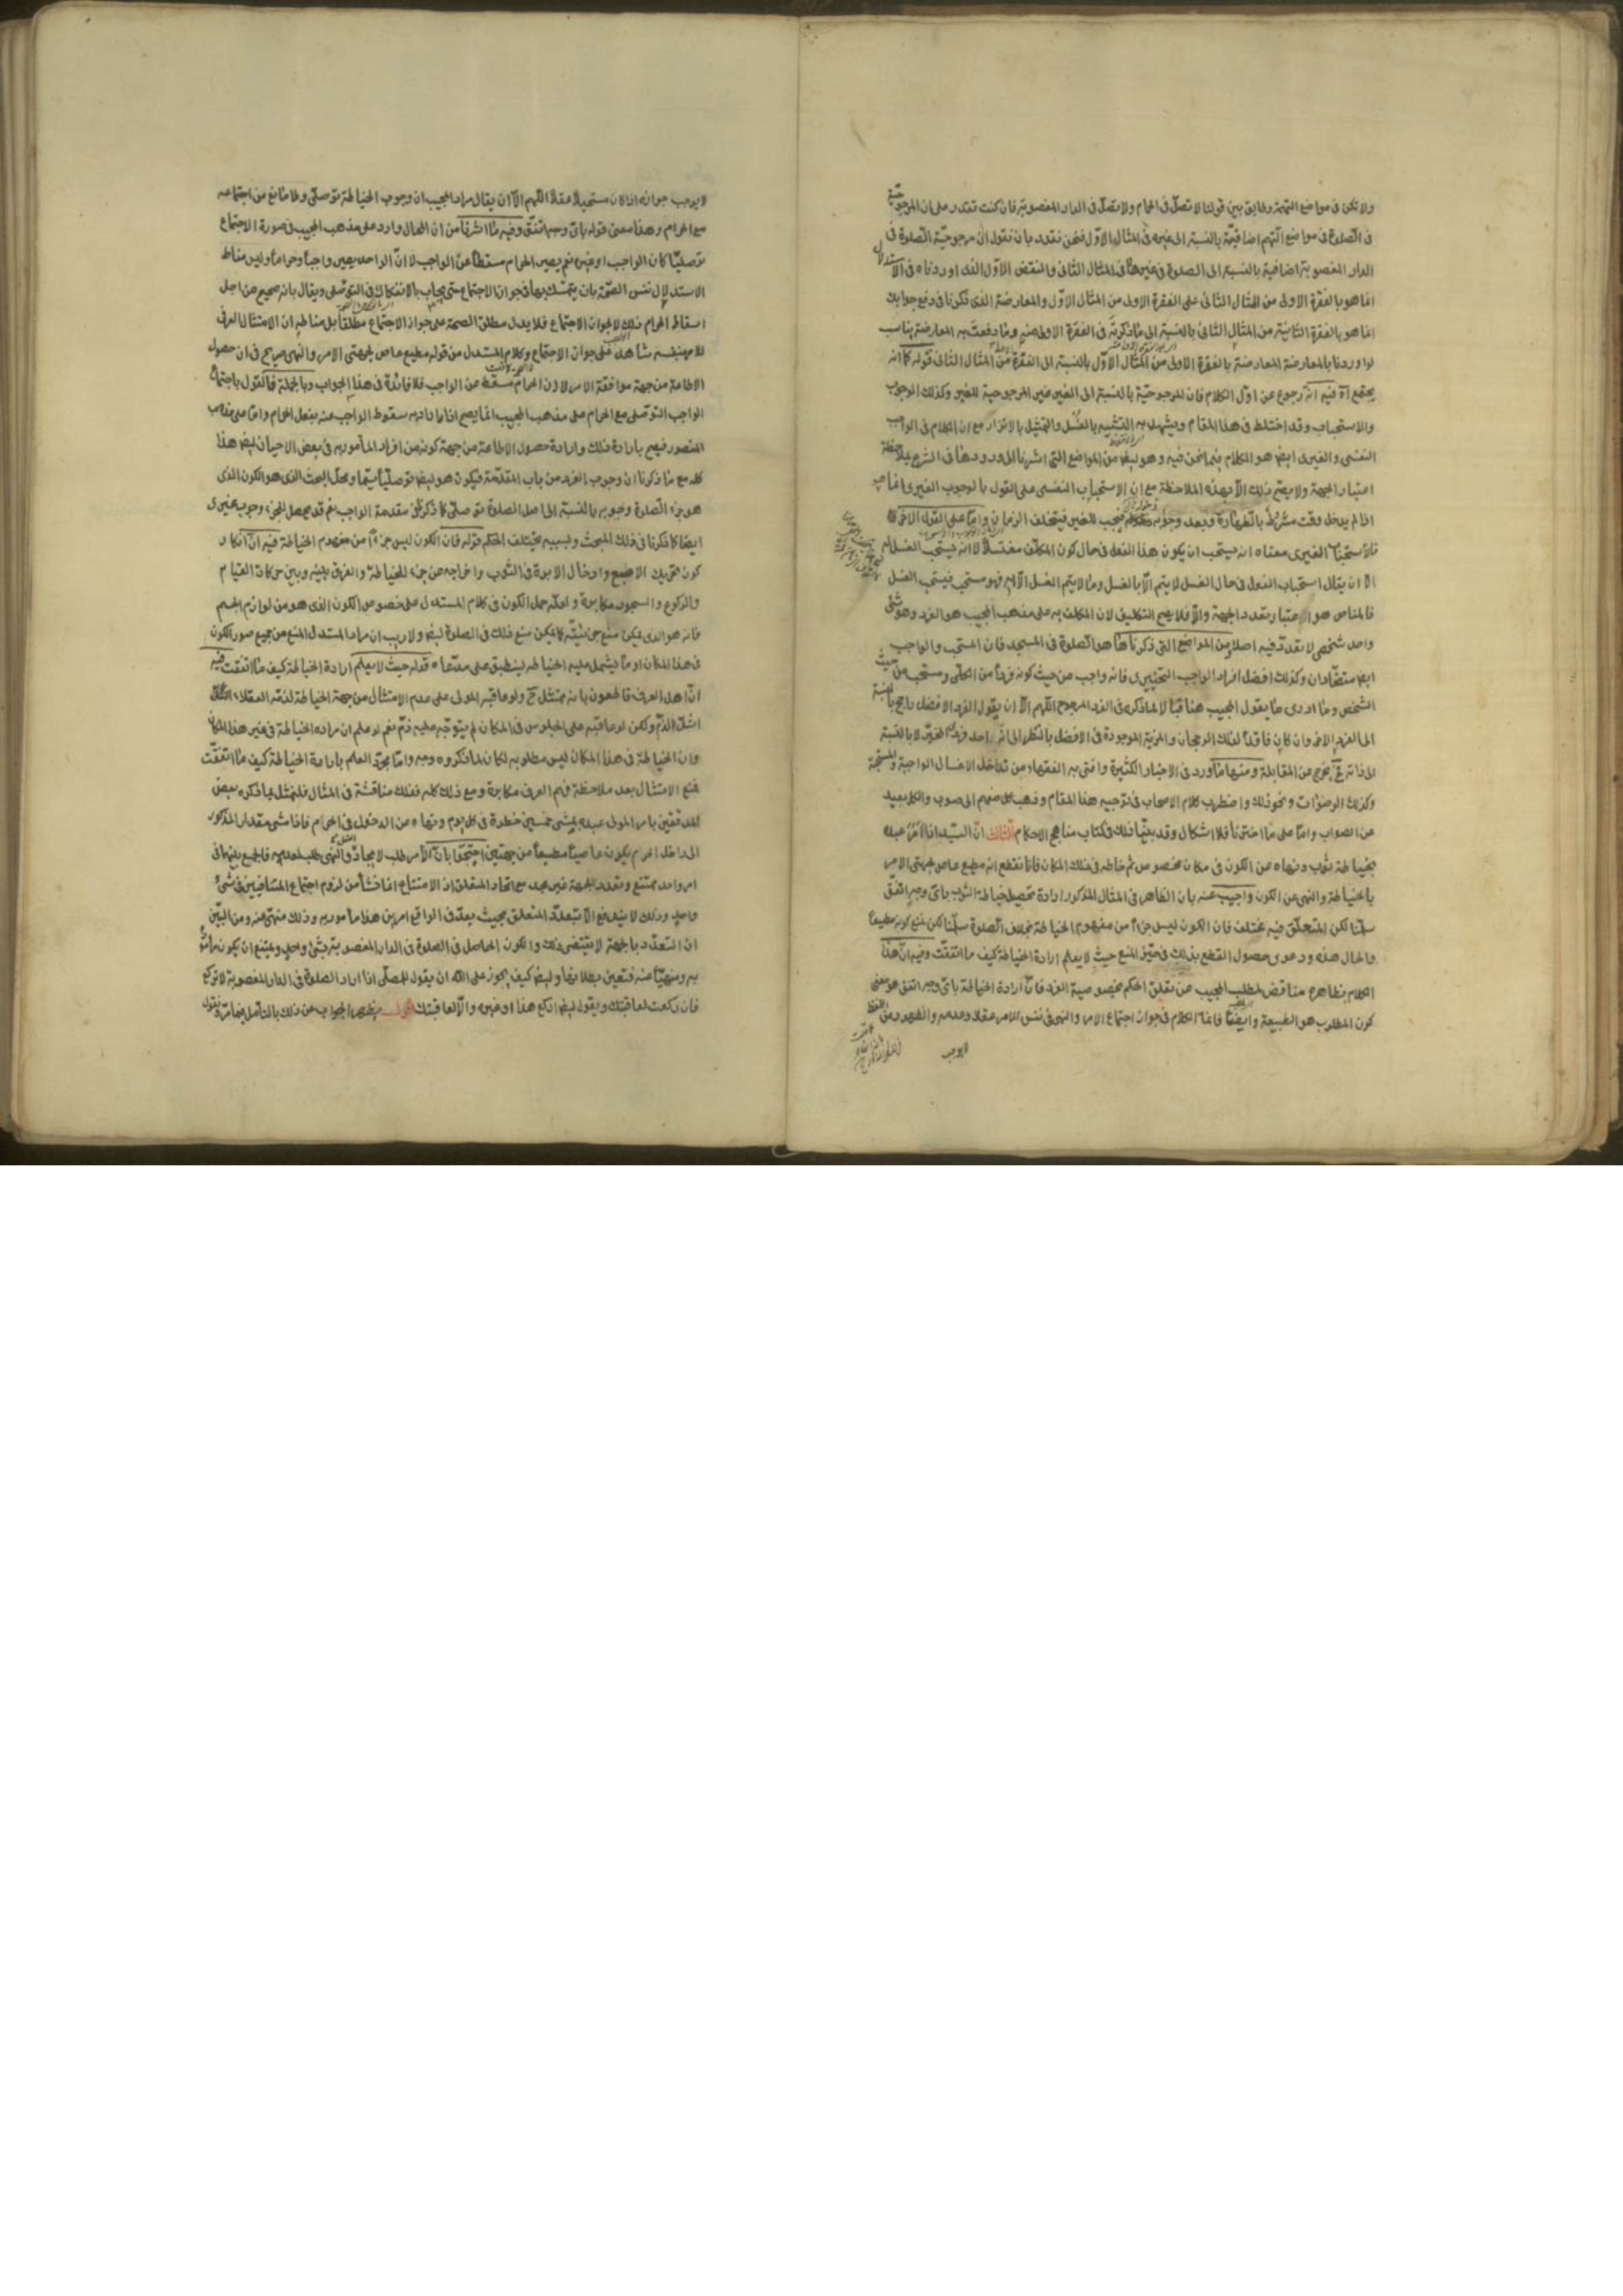 ولا تكن فى مواضع التهمة وطابق بين قولنا لا تصلّ فى الحمام ولا تصلّ فى الدار المغصوبة فان كنت تقدر على ان المرجوحيّة
فى الصلوة فى مواضع التهم اضافيّة بالنسبة الى غيره فى المثال الاوّل فنحن نقدر بان نقول ان مرجوحيّة الصلوة فى
الدار المغصوبة اضافية بالنسبة الى الصلوة فى غيرها فى المثال الثانى والنقض الاوّل الذى اوردناه فى الاستدلال
انما هو بالفقرة الاولى من المثال الثانى على الفقرة الاولى من المثال الاوّل والمعارضة الذى ذكرنا فى دفع جوابك
انما هو بالفقرة الثانية من المثال الثانى بالنسبة الى ما ذكرته فى الفقرة الاولى منه وما دفعت به المعارضة يناسب
لو اوردنا بالمعارضة المعارضة بالفقرة الاولى من المثال الاوّل بالنسبة الى الفقرة من المثال الثانى قوله كما انه
يجتمع اه فيه انه رجوع عن اوّل الكلام فان المرجوحيّة بالنسبة الى الغير غير المرجوحية للغير وكذلك الوجوب
والاستحباب وقد اختلط فى هذا المقام ويشهد به التشبيه بالغسل والتمثيل بالاتزار مع ان الكلام فى الواجب
النفسى والغيرى ايضا هو الكلام فيما نحن فيه وهو ايضا من المواضع التى اشرنا الى ورودها فى الشرع بملاحظة
اعتبار الجهة ولا يصح ذلك الا بهذه الملاحظة مع ان الاستحباب النفسى على القول بالوجوب الغيرى انما هو
اذا لم يدخل وقت مشروط بالطهارة وبعد وجوبه فيجب للغير فيتخلف الزمان واما على القول الاخر
فالاستحباب الغيرى معناه انه يستحب ان يكون هذا الفعل فى حال كون المكلف مغتسلا لا انه يستحب الغسل له
الا ان يقال استحباب الفعل فى حال الغسل لا يتم الا بالغسل وما لا يتم الغسل الا به فهو مستحب فيستحب الغسل
فالمناص هو اعتبار تعدد الجهة والا فلا يصح التكليف لان المكلف به على مذهب المجيب هو الفرد وهو شئ
واحد شخصى لا تعدد فيه اصلا ومن المواضع التى ذكرناها هو الصلوة فى المسجد فان المستحب والواجب
ايضا متضادان وكذلك افضل افراد الواجب التخييرى فانه واجب من حيث كونه فردا من الكلى ومستحب من حيث
الشخص وما ادرى ما يقول المجيب هنا قبالا لما ذكره فى الفرد المرجوح اللهم الا ان يقول الفرد الافضل راجح بالنسبة
الى الفرد الاخر وان كان فاقدا لذلك الرجحان والمزية الموجودة فى الافضل بالنظر الى انه احد فردى المخير لا بالنسبة
الى ذاته يخرج عن المقابلة ومنها ما ورد فى الاخبار الكثيرة وافتى به الفقهاء من تداخل الاغسال الواجبة والمستحبة
وكذلك الوضوءات ونحو ذلك واضطرب كلام الاصحاب فى توجيه هذا المقام وذهب كل منهم الى صوب والكل بعيد
عن الصواب واما على ما اخترنا فلا اشكال وقد بينا ذلك فى كتاب مناهج الاحكام الثالث ان السيّد اذا امر عبده
بخياطة ثوب ونهاه عن الكون فى مكان مخصوص ثم خاطه فى ذلك المكان فانا نقطع انه مطيع عاص لجهتى الامر
بالخياطة والنهى عن الكون واجيب عنه بان الظاهر فى المثال المذكور ارادة تحصيل خياطة الثوب باىّ وجه اتفق
سلّمنا لكن المتعلّق فيه مختلف فان الكون ليس جزءا من مفهوم الخياطة بخلاف الصلوة سلّمنا لكن نمنع كونه مطيعا
والحال هذه ودعوى حصول القطع بذلك فى حيّز المنع حيث لا يعلم ارادة الخياطة كيف ما اتفقت وفيه ان هذا
الكلام بظاهره مناقض لمطلب المجيب من تعلق الحكم بخصوصية الفرد فان ارادة الخياطة باىّ وجه اتفق هو معنى
كون المطلوب هو الطبيعة وايضا فانما الكلام فى جواز اجتماع الامر والنهى فى نفس الامر عقلا وعدمه والظهور من اللفظ
لا يوجب
لا يوجب جوازه اذا كان مستحيلا عقلا اللهم الا ان يقال مراد المجيب ان وجوب الخياطة توصلى ولا مانع من اجتماعه
مع الحرام وهذا معنى قوله باىّ وجه اتفق وفيه ما اشرنا من ان المحال وارد على مذهب المجيب فى صورة الاجتماع
توصليا كان الواجب او غيره نعم يصير الحرام مسقطا عن الواجب لا ان الواحد يصير واجبا وحراما وليس مناط
الاستدلال نفس الصحة بان يتمسك بها فى جواز الاجتماع حتى يجاب بالانفكاك فى التوصلى ويقال بانه صحيح من اجل
اسقاط الحرام ذلك لا لجواز الاجتماع فلا يدل مطلق الصحة على جواز الاجتماع مطلقا بل مناطه ان الامتثال العرفى
للامر بنفسه شاهد على جواز الاجتماع وكلام المستدل من قوله مطيع عاص لجهتى الامر والنهى صريح فى ان حصول
الاطاعة من جهة موافقة الامر لا لان الحرام مسقط عن الواجب فلا فائدة فى هذا الجواب وبالجملة فالقول باجتماع
الواجب التوصلى مع الحرام على مذهب المجيب انما يصح اذا اراد به سقوط الواجب عنه بفعل الحرام واما على مذهب
المنصور فيصح بارادة ذلك وارادة حصول الاطاعة من جهة كونه من افراد المأمور به فى بعض الاحيان ايضا هذا
كله مع ما ذكرنا ان وجوب الفرد من باب المقدّمة فيكون هو ايضا توصليا سيّما ومحل البحث الذى هو الكون الذى
هو جزء الصلوة وجوبه بالنسبة الى اصل الصلوة توصلى كما ذكر فى مقدمة الواجب نعم قد يحصل للجزء وجوب غيرى
ايضا كما ذكرنا فى ذلك المبحث وبسببه يختلف الحكم قوله فان الكون ليس جزءا من مفهوم الخياطة فيه ان انكار
كون تحريك الاصبع وادخال الابرة فى الثوب واخراجه من جزء للخياطة والفرق بينه وبين حركات القيام
والركوع والسجود مكابرة ولعله حمل الكون فى كلام المستدل على خصوص الكون الذى هو من لوازم الجسم
فانه هو الذى يمكن منع جزئيّته كما يمكن منع ذلك فى الصلوة ايضا ولا ريب ان مراد المستدل المنع من جميع صور الكون
فى هذا المكان او ما يشمل عليه الخياطة لينطبق على مدّعاه قوله حيث لا يعلم ارادة الخياطة كيف ما اتفقت فيه
ان اهل العرف قاطعون بانه ممتثل ح ولو عاقبه المولى على عدم الامتثال من جهة الخياطة لذمّه العقلاء
اشدّ الذّم ولكن لو عاقبه على الجلوس فى المكان لم يتوجّه عليه ذمّ نعم لو علم ان مراده الخياطة فى غير هذا المكان
وان الخياطة فى هذا المكان ليس مطلوبه لكان لما ذكروه وجه واما بمجرّد العلم بارادة الخياطة كيف ما اتفقت
فمنع الامتثال بعد ملاحظة فهم العرف مكابرة ومع ذلك كله فذلك مناقشة فى المثال فلنمثل بما ذكره بعض
المدققين بامر المولى عبده بمشى خمسين خطوة فى كل يوم ونهاه عن الدخول فى الحرام فاذا مشى مقدار المذكور
الى داخل الحرم يكون عاصيا مطيعا من جهتين احتجّوا بان الامر طلب لايجاد الفعل والنهى طلب لعدمه فالجمع بينهما فى
امر واحد ممتنع وتعدد الجهة غير مجد مع اتحاد المتعلق اذ الامتناع انما نشأ من لزوم اجتماع المتنافيين فى شئ
واحد وذلك لا يندفع الا بتعدّد المتعلق بحيث يعدّ فى الواقع امرين هذا مأمور به وذلك منهىّ عنه ومن البيّن
ان التعدّد بالجهة لا يقتضى ذلك والكون الحاصل فى الصلوة فى الدار المغصوبة شئ واحد ويمتنع ان يكون مأمورا
به ومنهيّا عنه فتعين بطلانها وايضا كيف يجوز على الله ان يقول للمصلّى اذا اراد الصلوة فى الدار المغصوبة لا تركع
فان ركعت لعاقبتك ويقول ايضا اركع هذا او غيره والا لعاقبتك اقول يظهر الجواب عن ذلك بالتأمل فيما مرّ ونقول